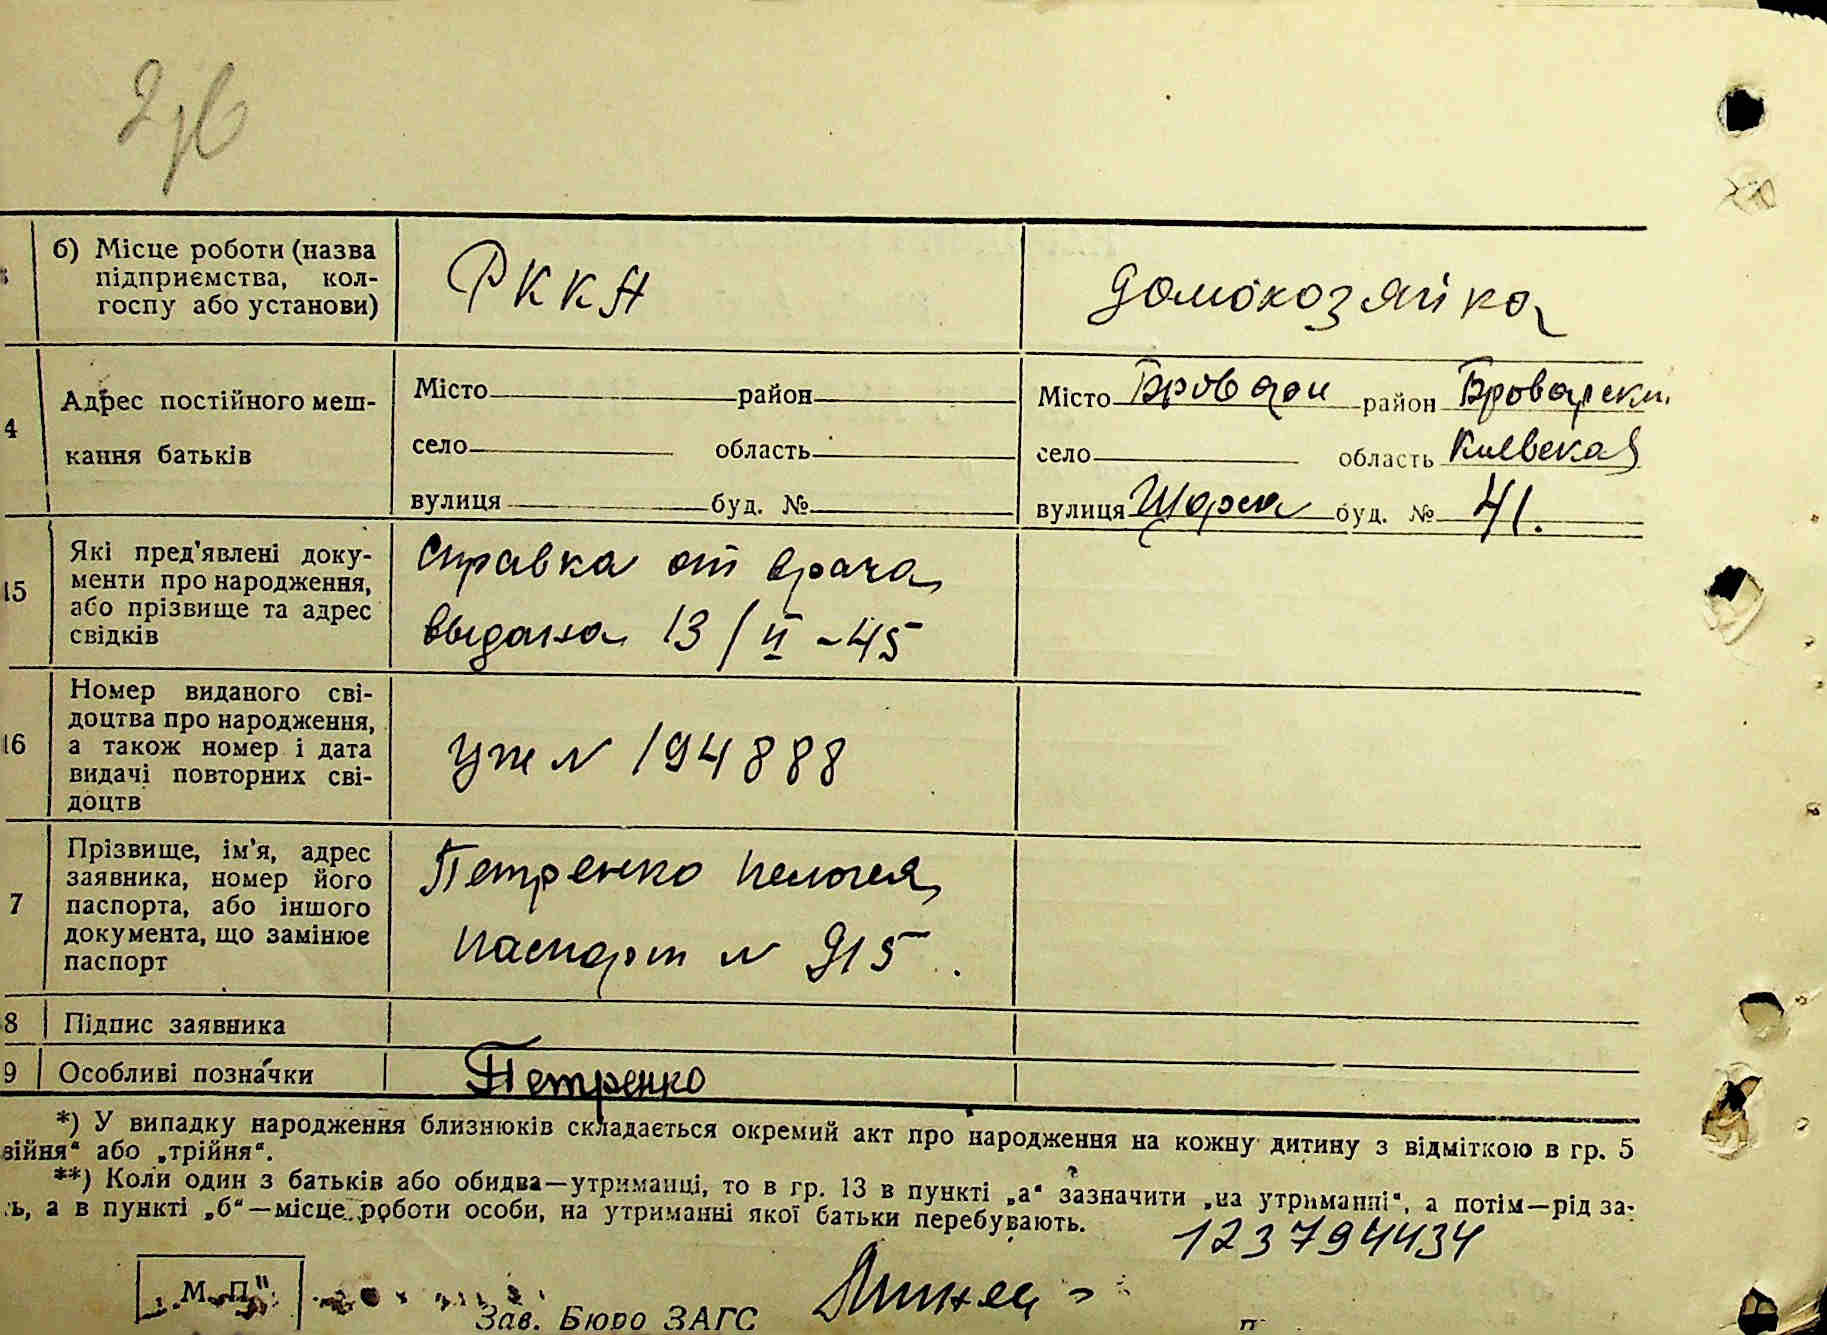 б) Місце роботи (назва
підприємства, кол-
госпу або установи)
РККА
домохозяйка
4
Адрес постійного меш-
кання батьків
Місто район
село область
вулиця буд. №
Місто Бровари район Броварски
село область Киевская
вулиця Щорса буд. № 41.
15
Які пред'явлені доку-
менти про народження,
або прізвище та адрес
свідків
справка от врача
выдана 13/II-45
16
Номер виданого сві-
доцтва про народження,
а також номер і дата
видачі повторних сві-
доцтв
УЖ N 194888
7
Прізвище, ім'я, адрес
заявника, номер його
паспорта, або іншого
документа, що замінює
паспорт
Петренко Пелагея
паспорт N 915.
8 Підпис заявника
9 Особливі позначки
Петренко
*) У випадку народження близнюків складається окремий акт про народження на кожну дитину з відміткою в гр. 5
війня“ або „трійня“.
**) Коли один з батьків або обидва—утриманці, то в гр. 13 в пункті „а“ зазначити „на утриманні“, а потім—рід за-
ь, а в пункті „б“—місце роботи особи, на утриманні якої батьки перебувають.
123794434
„М. П."
Зав. Бюро ЗАГС